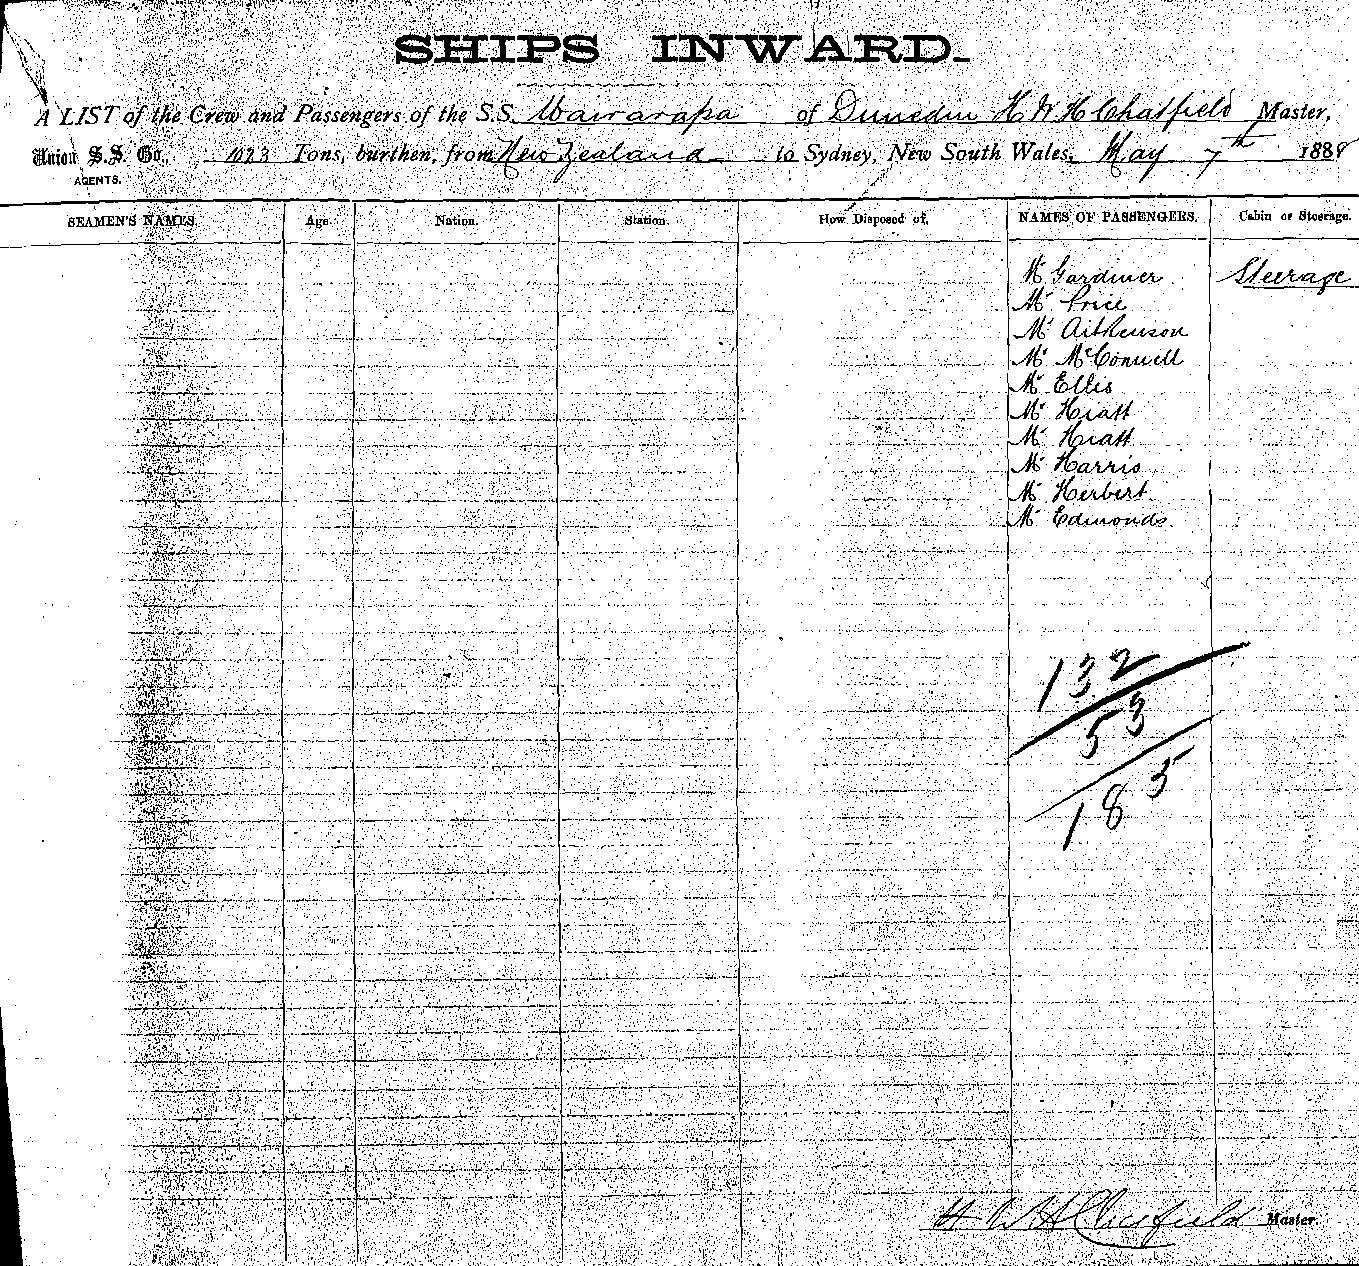 SHIPS INWARD.
A LIST of the Crew and Passengers of the S.S. Wairarapa of Dunedin H W H Chatfield Master,
Union S.S. Co., 1023 Tons, burthen, from New Zealand to Sydney, New South Wales, May 7th 1888
AGENTS.
SEAMEN'S NAMES Age. Nation. Station. How Disposed of. NAMES OF PASSENGERS. Cabin or Steerage.
Mr Gardiner Steerage
Mr Price
Mr Aitkenson
Mr McConnell
Mr Ellis
Mr Hiatt
Mr Hiatt
Mr Harris
Mr Herbert
Mr Edmonds
132
53
185
H W H Chatfield Master.